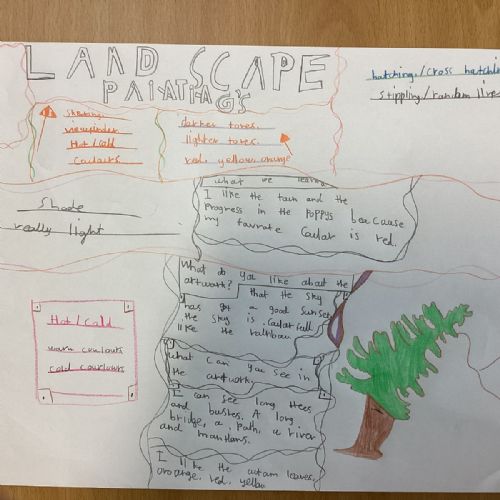 LAND SCAPE
PAINTING'S
hatching/cross hatching
stippling/random lines
Sketching
viewfinder
Hot/Cold
Coulours
darker tones.
lighter tones.
red, yellow, orange
what we learn
I like the and the
progress in the poppys beacause
my favrate Coular is red.
Shade
really light
What do you like about the
artwork? that the sky
has got a good sunset
the sky is Coularfull
like the rainbow
Hot/Cold
warm coulours
cold coulours
what can you see in
the artwork.
I can see long trees
and bushes. A long
bridge, a path, a river
and mountans.
I like the autam leaves,
orange, red, yellow